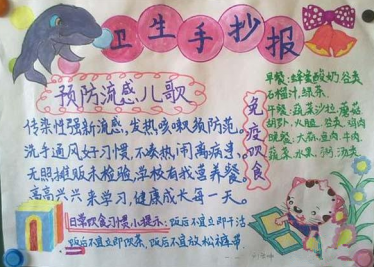 卫生手抄报
预防流感儿歌
传染性强新流感,发热咳嗽须防范。
洗手通风好习惯,不凑热闹离病患。
无照摊贩未检验,学校有我营养餐。
高高兴兴来学习,健康成长每一天。
日常饮食习惯小提示:饭后不宜立即干活
饭后不宜立即饮茶、饭后不宜放松裤带
免疫饮食
早餐:蜂蜜酸奶谷类
石榴汁,绿茶
午餐:蔬菜沙拉,蘑菇
胡萝卜,火腿,谷类,鸡肉
晚餐:大蒜,豆肉,牛肉
蔬菜,水果,粥,汤类